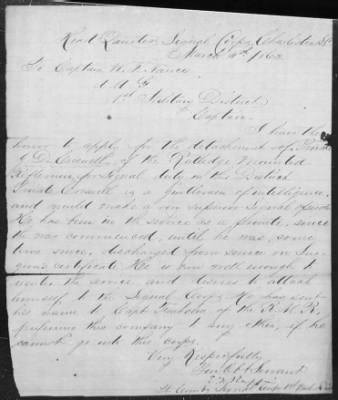 Head Quarters Signal Corps Charleston SC
March 4th 1863
To Captain W. F. Nance
A A G
1st Military District
Captain
I have the
honor to apply for the detachment of Private
of the Rutledge Mounted
Riflemen for Signal duty in this District
Private is a gentleman of intelligence,
and would make a very superior Signal operator
He has been in the service as a private, since
the war commenced, until he was, some
time since, discharged from service on Sur-
geons certificate He is now well enough to
enter the service and desires to attach
himself to the Signal Corps. He has sent
his name to Capt Trenholm of the R. M. R.
preferring this company to any other, if he
cannot go into this corps.
Very Respectfully
Your Obt Servant
Signal Corps 1st